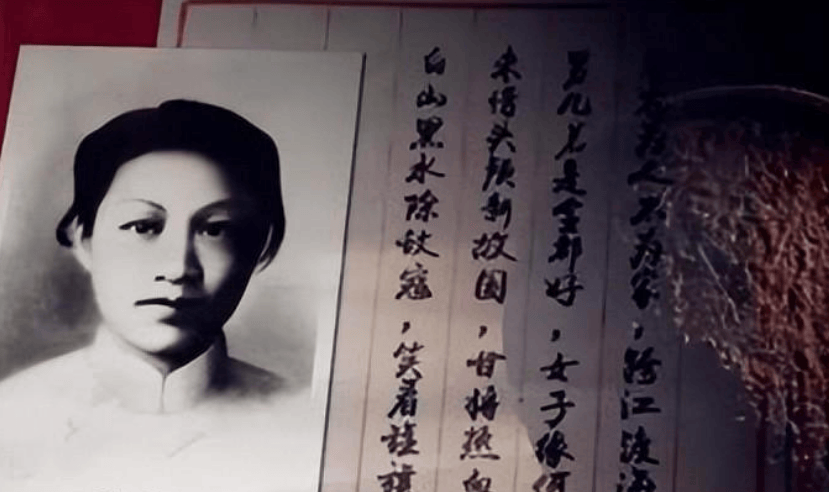 为人不为家，跨江渡海
男儿若是全都好，女子缘何
未惜头颅新故国，甘将热血
白山黑水除敌寇，笑看旌旗